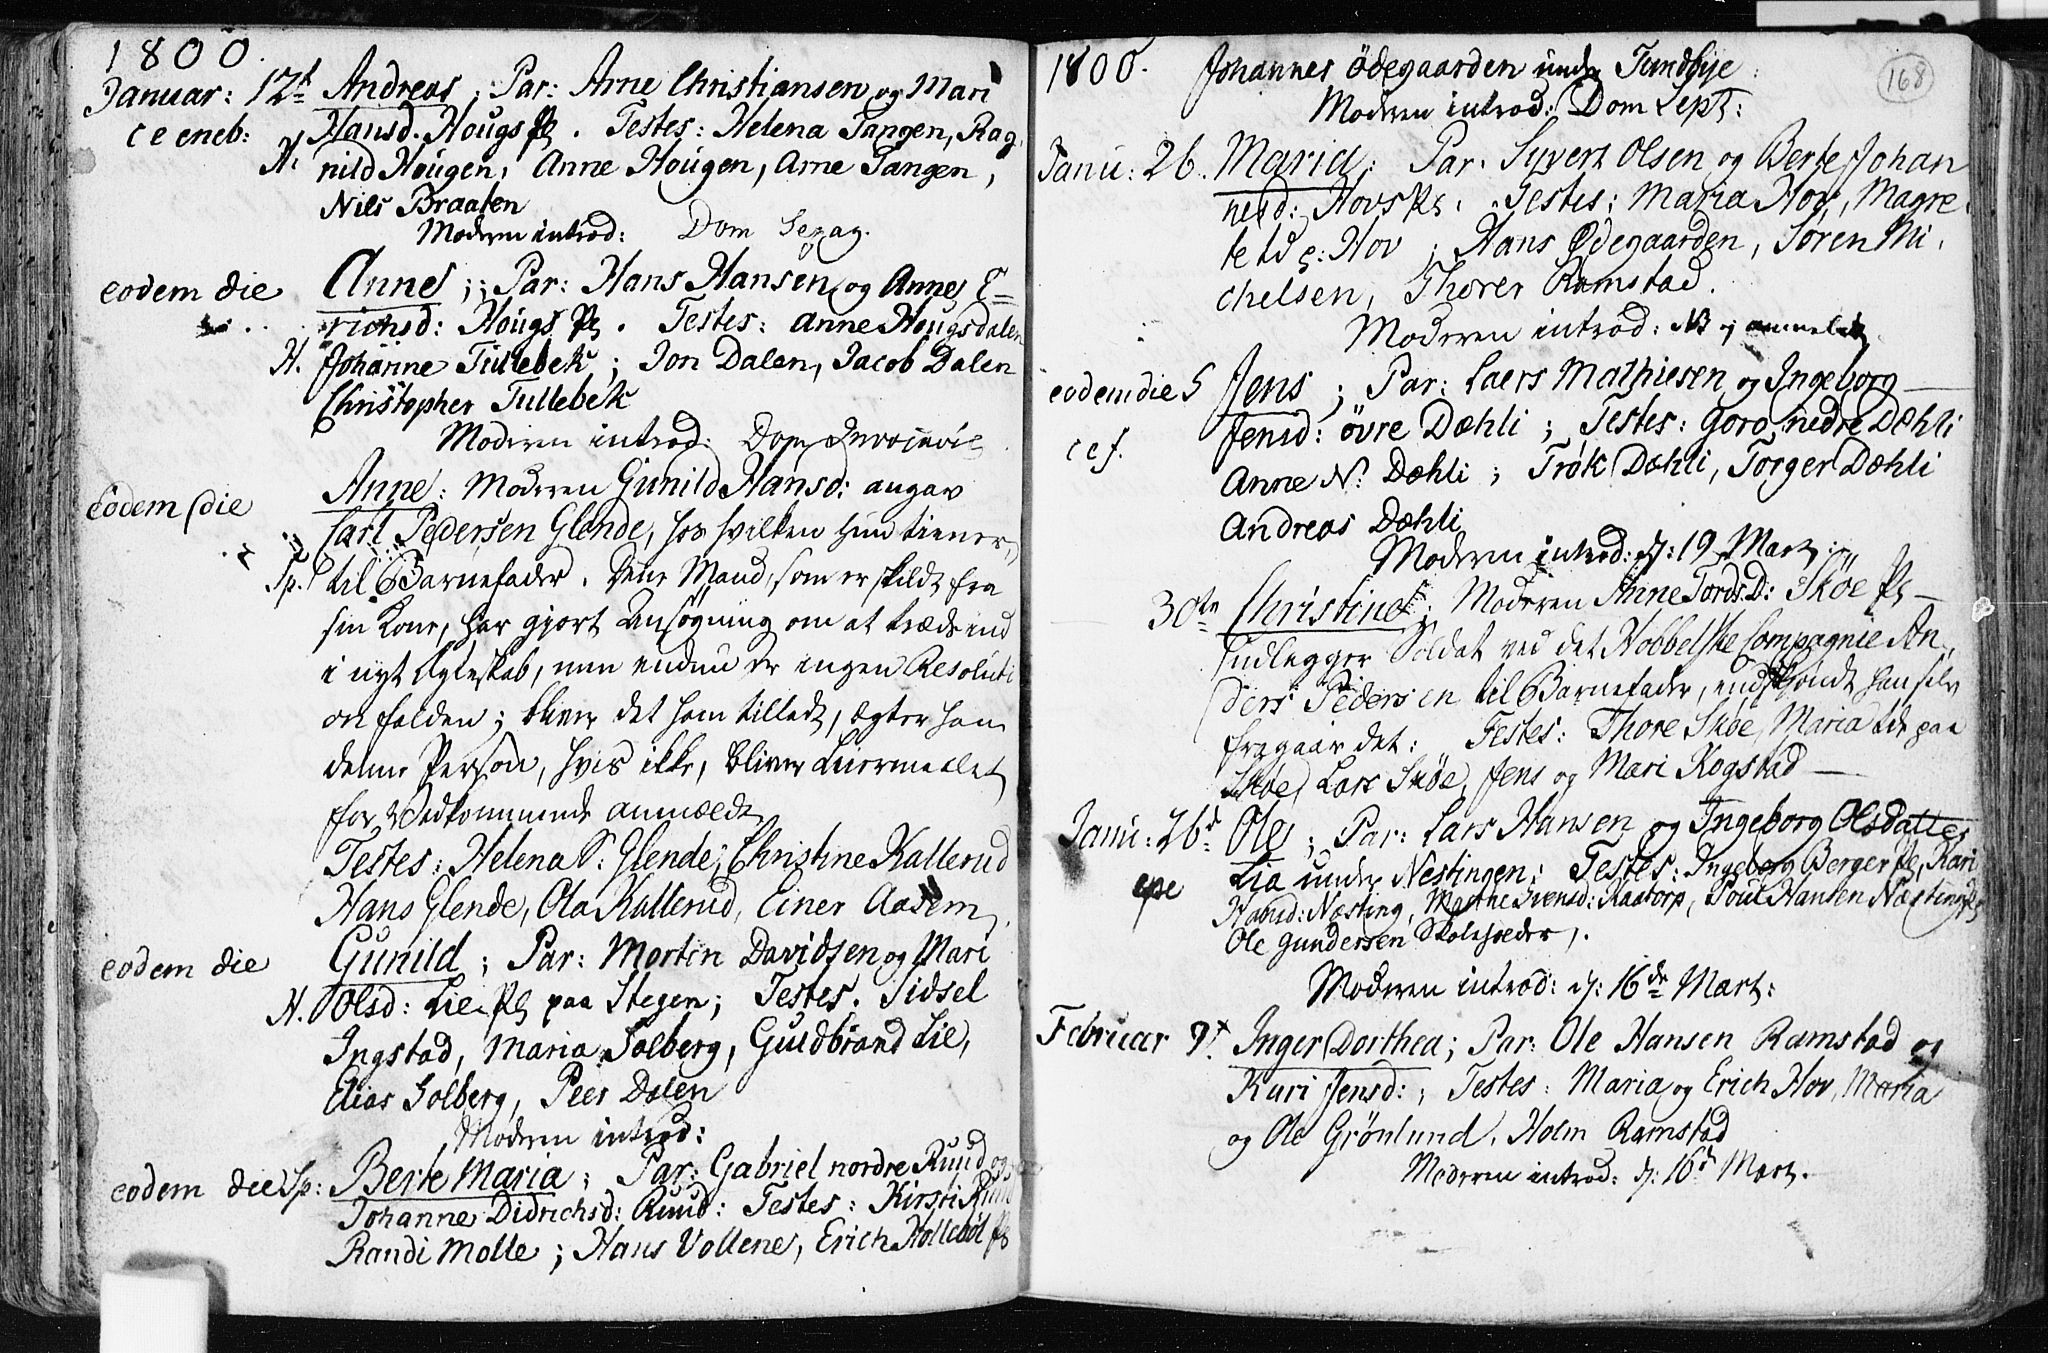 1800.
Januar: 12t Andreas; Par: Arne Christiansen og Mari
Hansd. Hougs Pl. Testes: Helena Tangen, Rag-
H. nild Hougen, Anne Hougen, Arne Tangen,
Nils Braaten
Moderen introd: Dom Sexag.
eodem die Anne; Par: Hans Hansen og Anne E=
richsd: Hougs Pl. Testes: Anne Hougsdalen
H. Johanne Tullebek; Jon Dalen, Jacob Dalen
Christopher Tullebek
Moderen introd: Dom
eodem die Anne: Moderen Gunild Hansd: angav
Carl Pedersen Glende, hos hvilken hun tiener
Sp. til Barnefader. Denne Mand, som er skildt fra
sin Kone, har gjort Ansøgning om at træde ind
i nyt Ægteskab, men endnu er ingen Resoluti
on falden; bliver det ham tilladt, ægter han
denne Person, hvis ikke, bliver
for Vedkommende anmældt
Testes: Helena S: Glende; Christine Kallerud
Hans Glende, Ola Kallerud, Einer Aasem
eodem die Gunild; Par: Morten Davidsen og Mari
H. Olsd: Lie Pl paa Stegen; Testes. Sidsel
Ingstad, Maria Solberg, Gudbrand Lie,
Elias Solberg, Peer Dalen
Moderen introd:
eodem die Sp: Berte Maria; Par: Gabriel nordre Ruud og
Johanne Didrichsd: Ruud: Testes: Kirsti Ruud
Randi Molle; Hans Vollene, Erich Kollebøl Pl
1800. Johannes Ödegaarden under Tundbye:
168
Moderen introd: Dom Sept:
Janu: 26. Maria: Par. Syvert Olsen og Berte Johan
nesd: Hovs Pl. Testes: Maria Hov, Magre-
te Hov; Hans Ødegaarden, Søren Mi-
chelsen, Thorer Ramstad.
Moderen introd: NB
eodem die S Jens; Par: Laers Mathiesen og Ingeborg
Jensd: övre Dæhli; Testes: Goro nedre Dæhli
Anne N. Dæhli; Trök Dæhli, Torger Dæhli
Andreas Dæhli
Moderen introd: d: 19 Mart:
30te Christine; Moderen Anne TordsD: Sköe Pl
udlægger Soldat ved det Hobbelske Compagnie An-
ders Pedersen til Barnefader, endskjöndt han selv
fragaar det: Testes: Thore Sköe, Maria paa
Sköe, Lars Sköe, Jens og Mari Kogstad
Janu: 26d Ole; Par: Lars Hansen og Ingeborg Olsdatter
Lia under Nestingen: Testes: Ingeborg Berger Pl, Kari
Hansd: Næsting, Marthe Svensd: Kaatorp, Poul Hansen Næsting Pl
Ole Gundersen Skoleholder.
Moderen introd: d: 16de Mart:
Februar 9t. Inger Dorthea; Par: Ole Hansen Ramstad og
Kari Jensd:; Testes: Maria og Erich Hov, Maria
og Ole Grönlund, Holm Ramstad
Moderen introd: d: 16d Mart.